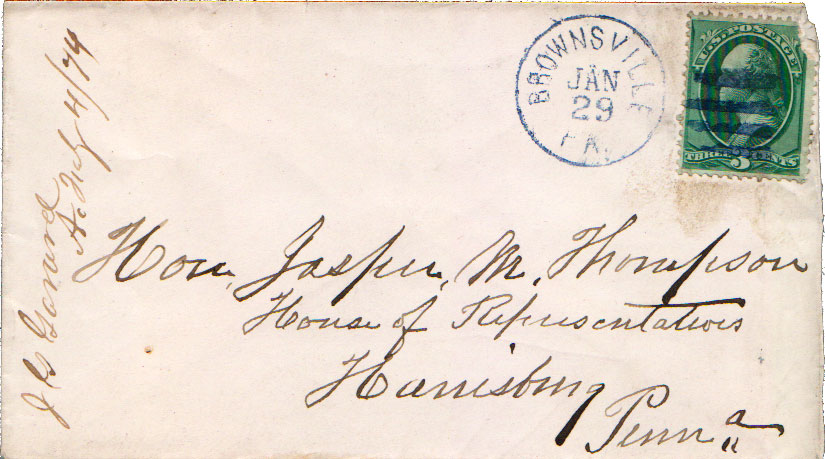 BROWNSVILLE
JAN
29
PA.
U.S. POSTAGE
THREE 3 CENTS
Hon. Jasper. M. Thompson
House of Representatives
Harrisburg
Penn a
J G
A. July 4/74